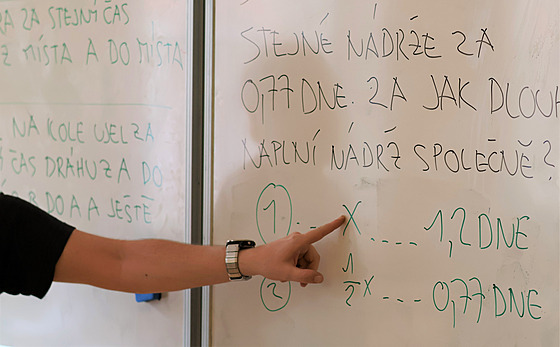 ZA STEJNÝ ČAS
Z MÍSTA A DO MÍSTA
NA KOLE UJEL ZA
ČAS DRÁHU Z A DO
B DO A A JEŠTĚ
STEJNÉ NÁDRŽE ZA
0,77 DNE. ZA JAK DLOU
NAPLNÍ NÁDRŽ SPOLEČNĚ?
1 .... X .... 1,2 DNE
2 1/2 X .... 0,77 DNE